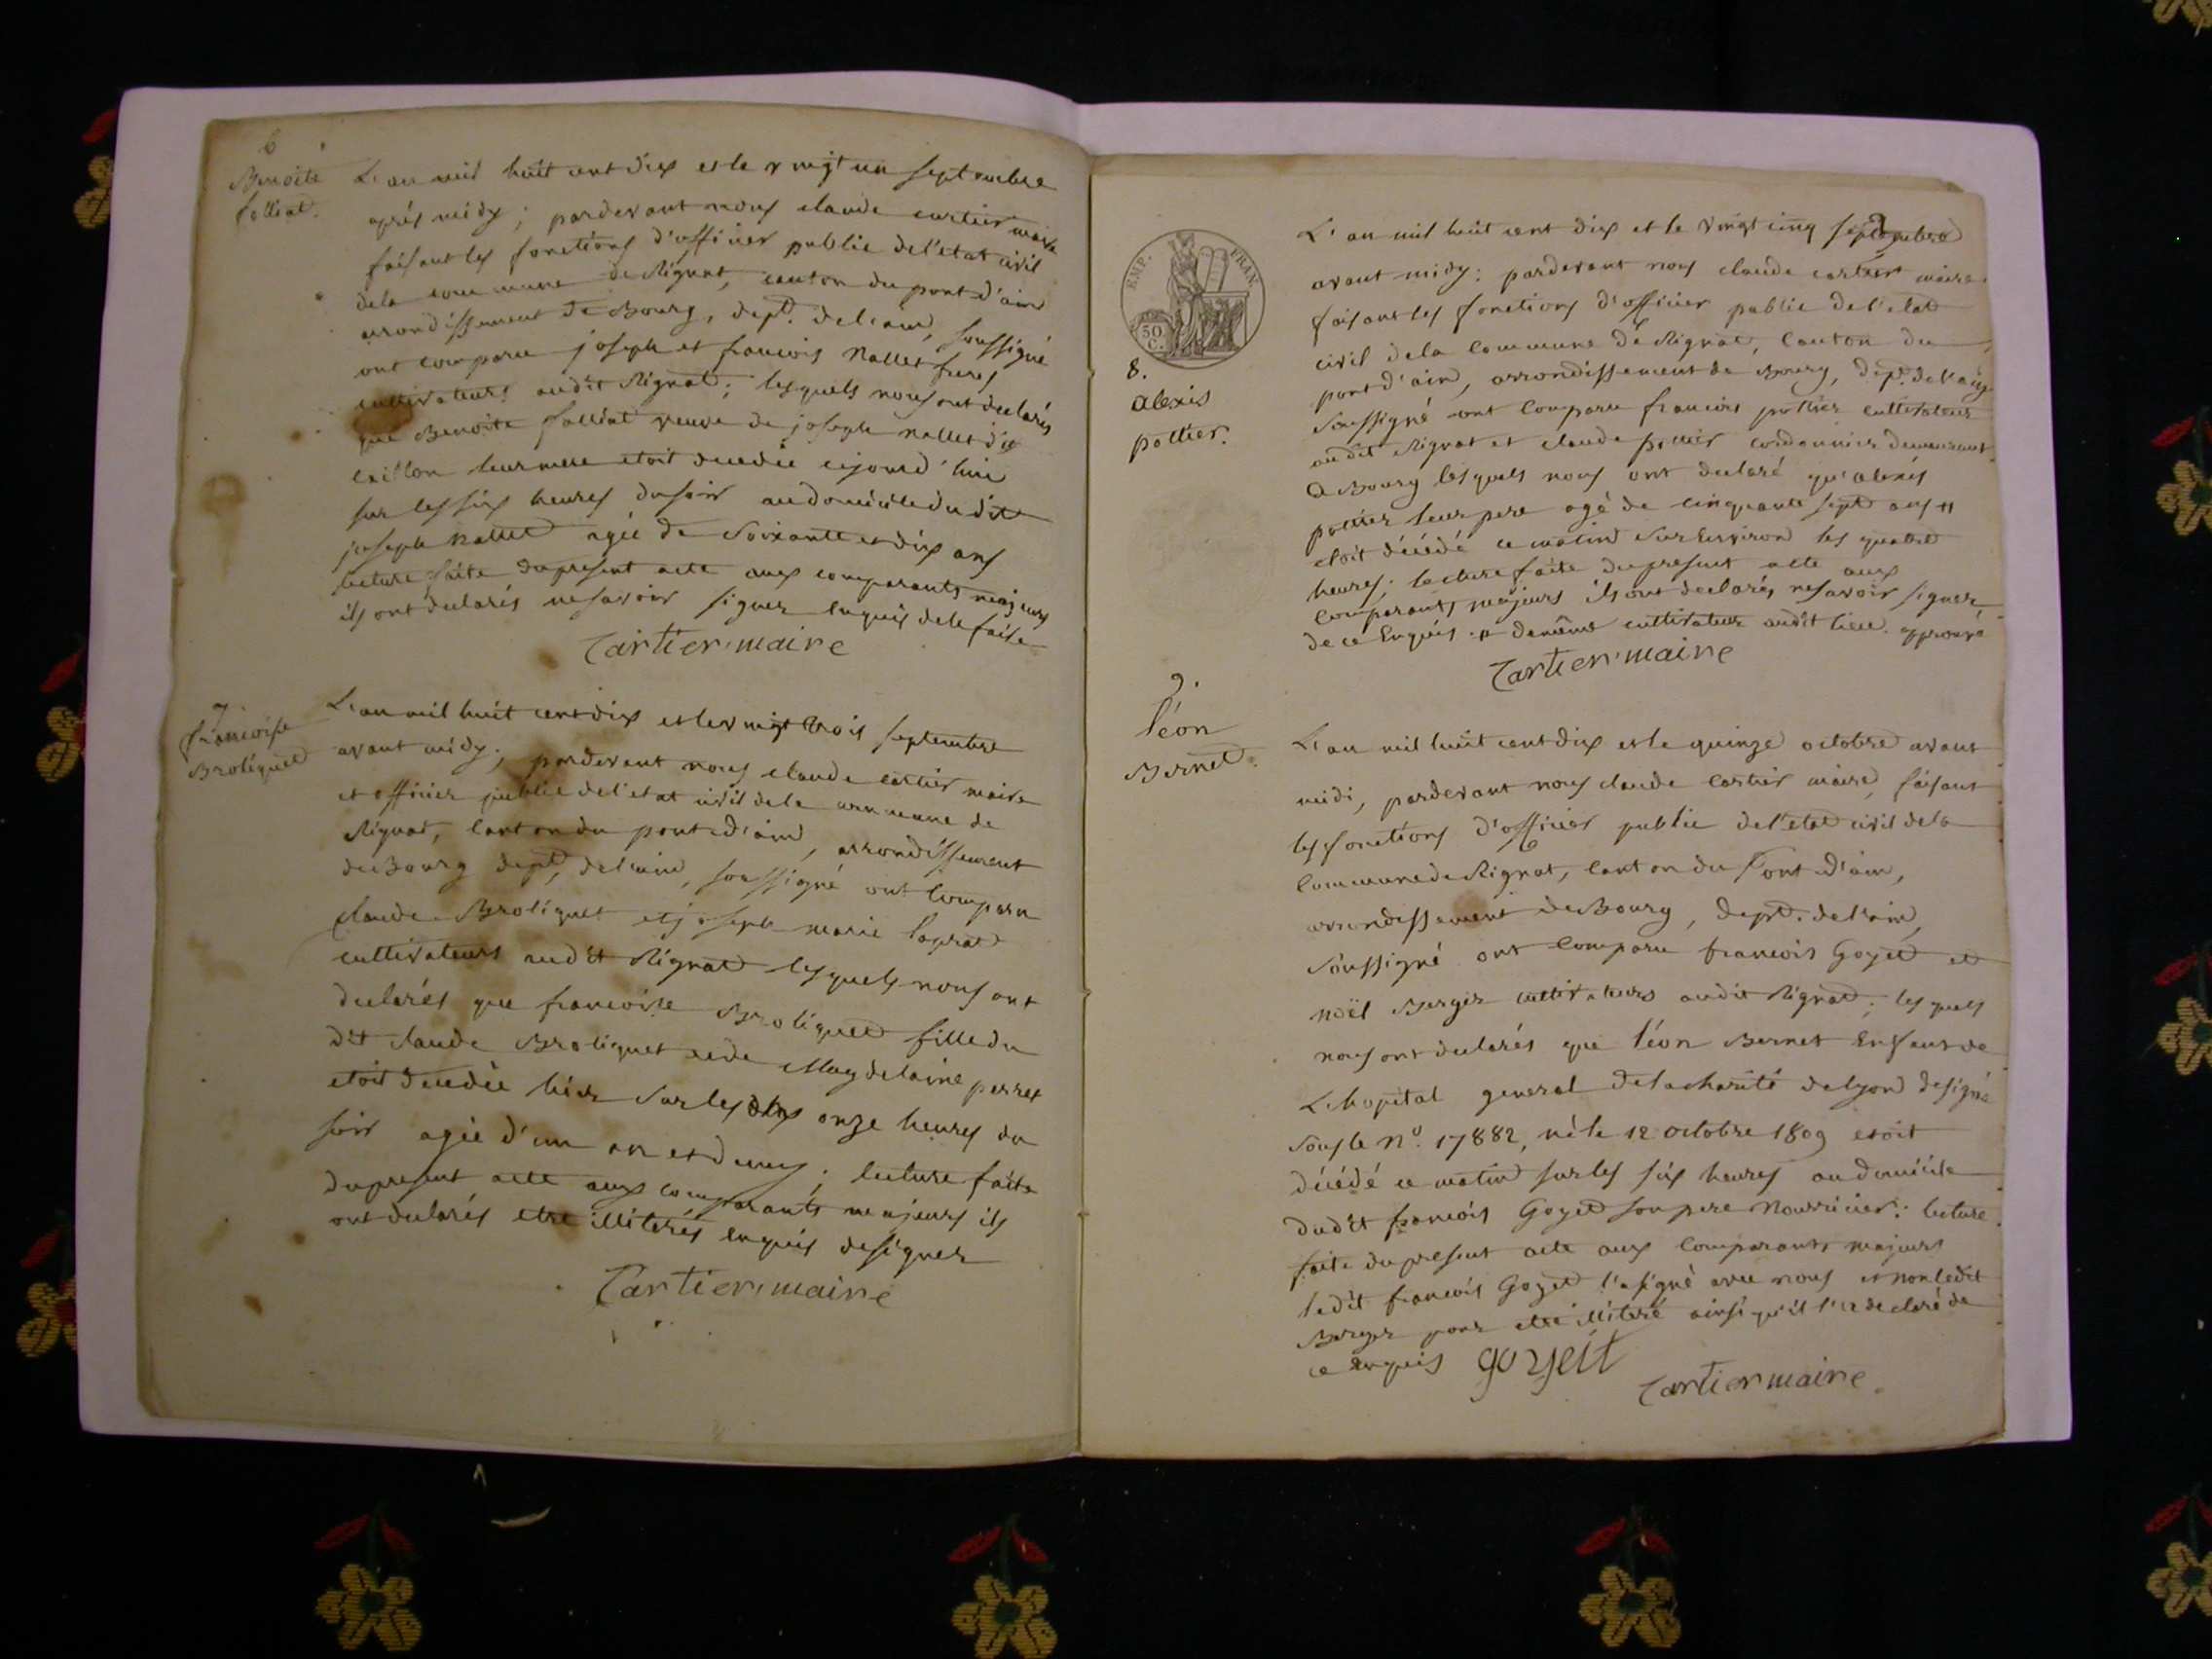 6
Benoite
folliat.
L'an mil huit cent dix et le vingt un septembre
après midy; pardevant nous claude cartier maire
faisant les fonctions d'officier public de l'etat civil
de la commune de Rignat, canton du pont d'ain
arrondissement de Bourg, dept. de l'ain, soussigné
ont comparu joseph et francois Nallet freres
cultivateurs audit Rignat; lesquels nous ont declarés
que Benoite folliat veuve de joseph nallet dit
leur mere etoit decedée cejourd'hui
sur les six heures du soir au domicile du dit
joseph Nallet agée de soixante et dix ans
lecture faite du present acte aux comparants majeurs
ils ont declarés ne savoir signer enquis de le faire
Cartier maire
7
francoise
Broliquet
L'an mil huit cent dix et le vingt trois septembre
avant midy; pardevant nous claude cartier maire
et officier public de l'etat civil de la commune de
Rignat, canton du pont d'ain, arrondissement
de Bourg dept. de l'ain, soussigné ont comparu
claude Broliquet et joseph marie
cultivateurs audit Rignat lesquels nous ont
declarés que francoise Broliquet fille du
dit claude Broliquet et de Magdelaine perret
etoit decedée hier sur les onze heures du
soir agée d'un an et demy; lecture faite
du present acte aux comparants majeurs ils
ont declarés etre illiterés enquis de signer
Cartier maire
EMP. FRAN.
50
C.
8.
alexis
pottier.
L'an mil huit cent dix et le vingt cinq septembre
avant midy: pardevant nous claude cartier maire
faisant les fonctions d'officier public de l'etat
civil de la commune de Rignat, canton du
pont d'ain, arrondissement de Bourg, dept. de l'ain
soussigné ont comparu francois pottier cultivateur
audit Rignat et claude pottier cordonnier demeurant
a Bourg lesquels nous ont declaré qu'alexis
pottier leur pere agé de cinquante sept ans "
etoit décédé ce matin sur environ les quatre
heures; lecture faite du present acte aux
comparants majeurs ils ont declarés ne savoir signer
de ce enquis. " cultivateur audit lieu. approuvé
Cartier maire
9.
léon
Bernet.
L'an mil huit cent dix et le quinze octobre avant
midi, pardevant nous claude cartier maire, faisant
les fonctions d'officier public de l'etat civil de la
commune de Rignat, canton du Pont d'ain,
arrondissement de Bourg, dept. de l'ain,
soussigné ont comparu francois Goyet et
noël Berger cultivateurs audit Rignat; lesquels
nous ont declarés que léon Bernet enfant de
L'hopital general de la charité de lyon designé
sous le n° 17882, né le 12 octobre 1809 etoit
décédé ce matin sur les six heures au domicile
dudit francois Goyet son pere Nourricier: lecture
faite du present acte aux comparants majeurs
ledit francois Goyet l'a signé avec nous et non ledit
Berger pour etre illiteré ainsi qu'il l'a declaré de
ce enquis goyett
Cartier maire.